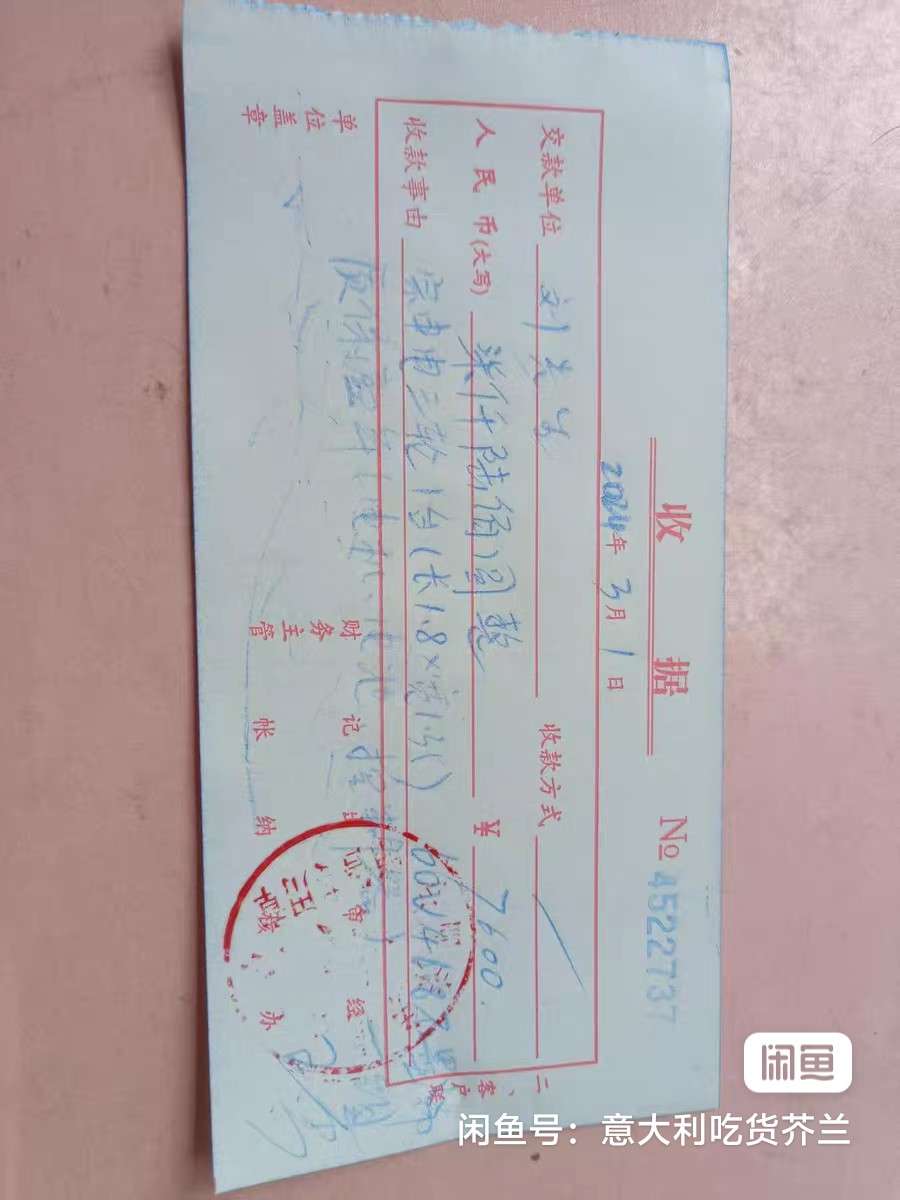 收据
No 4522737
2024年3月1日
交款单位 刘先生 收款方式
人民币(大写) 柒仟陆佰圆整 ¥ 7600.
收款事由 宗申电三轮1台(长1.8×宽1.3
质保壹年(电机、电池
单位盖章 财务主管 记帐 出纳 审核 经办
二、客户联
闲鱼
闲鱼号：意大利吃货芥兰